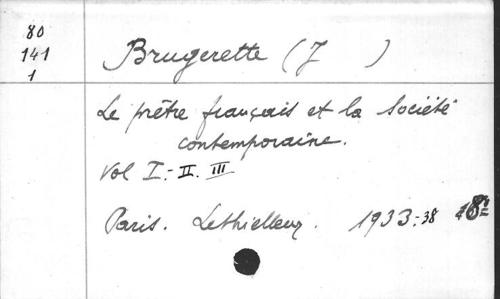 80
141
1
Brugerette (J )
Le prêtre français et la Société
contemporaine.
Vol I.-II. III
Paris. Lethielleux. 1933-38 8°